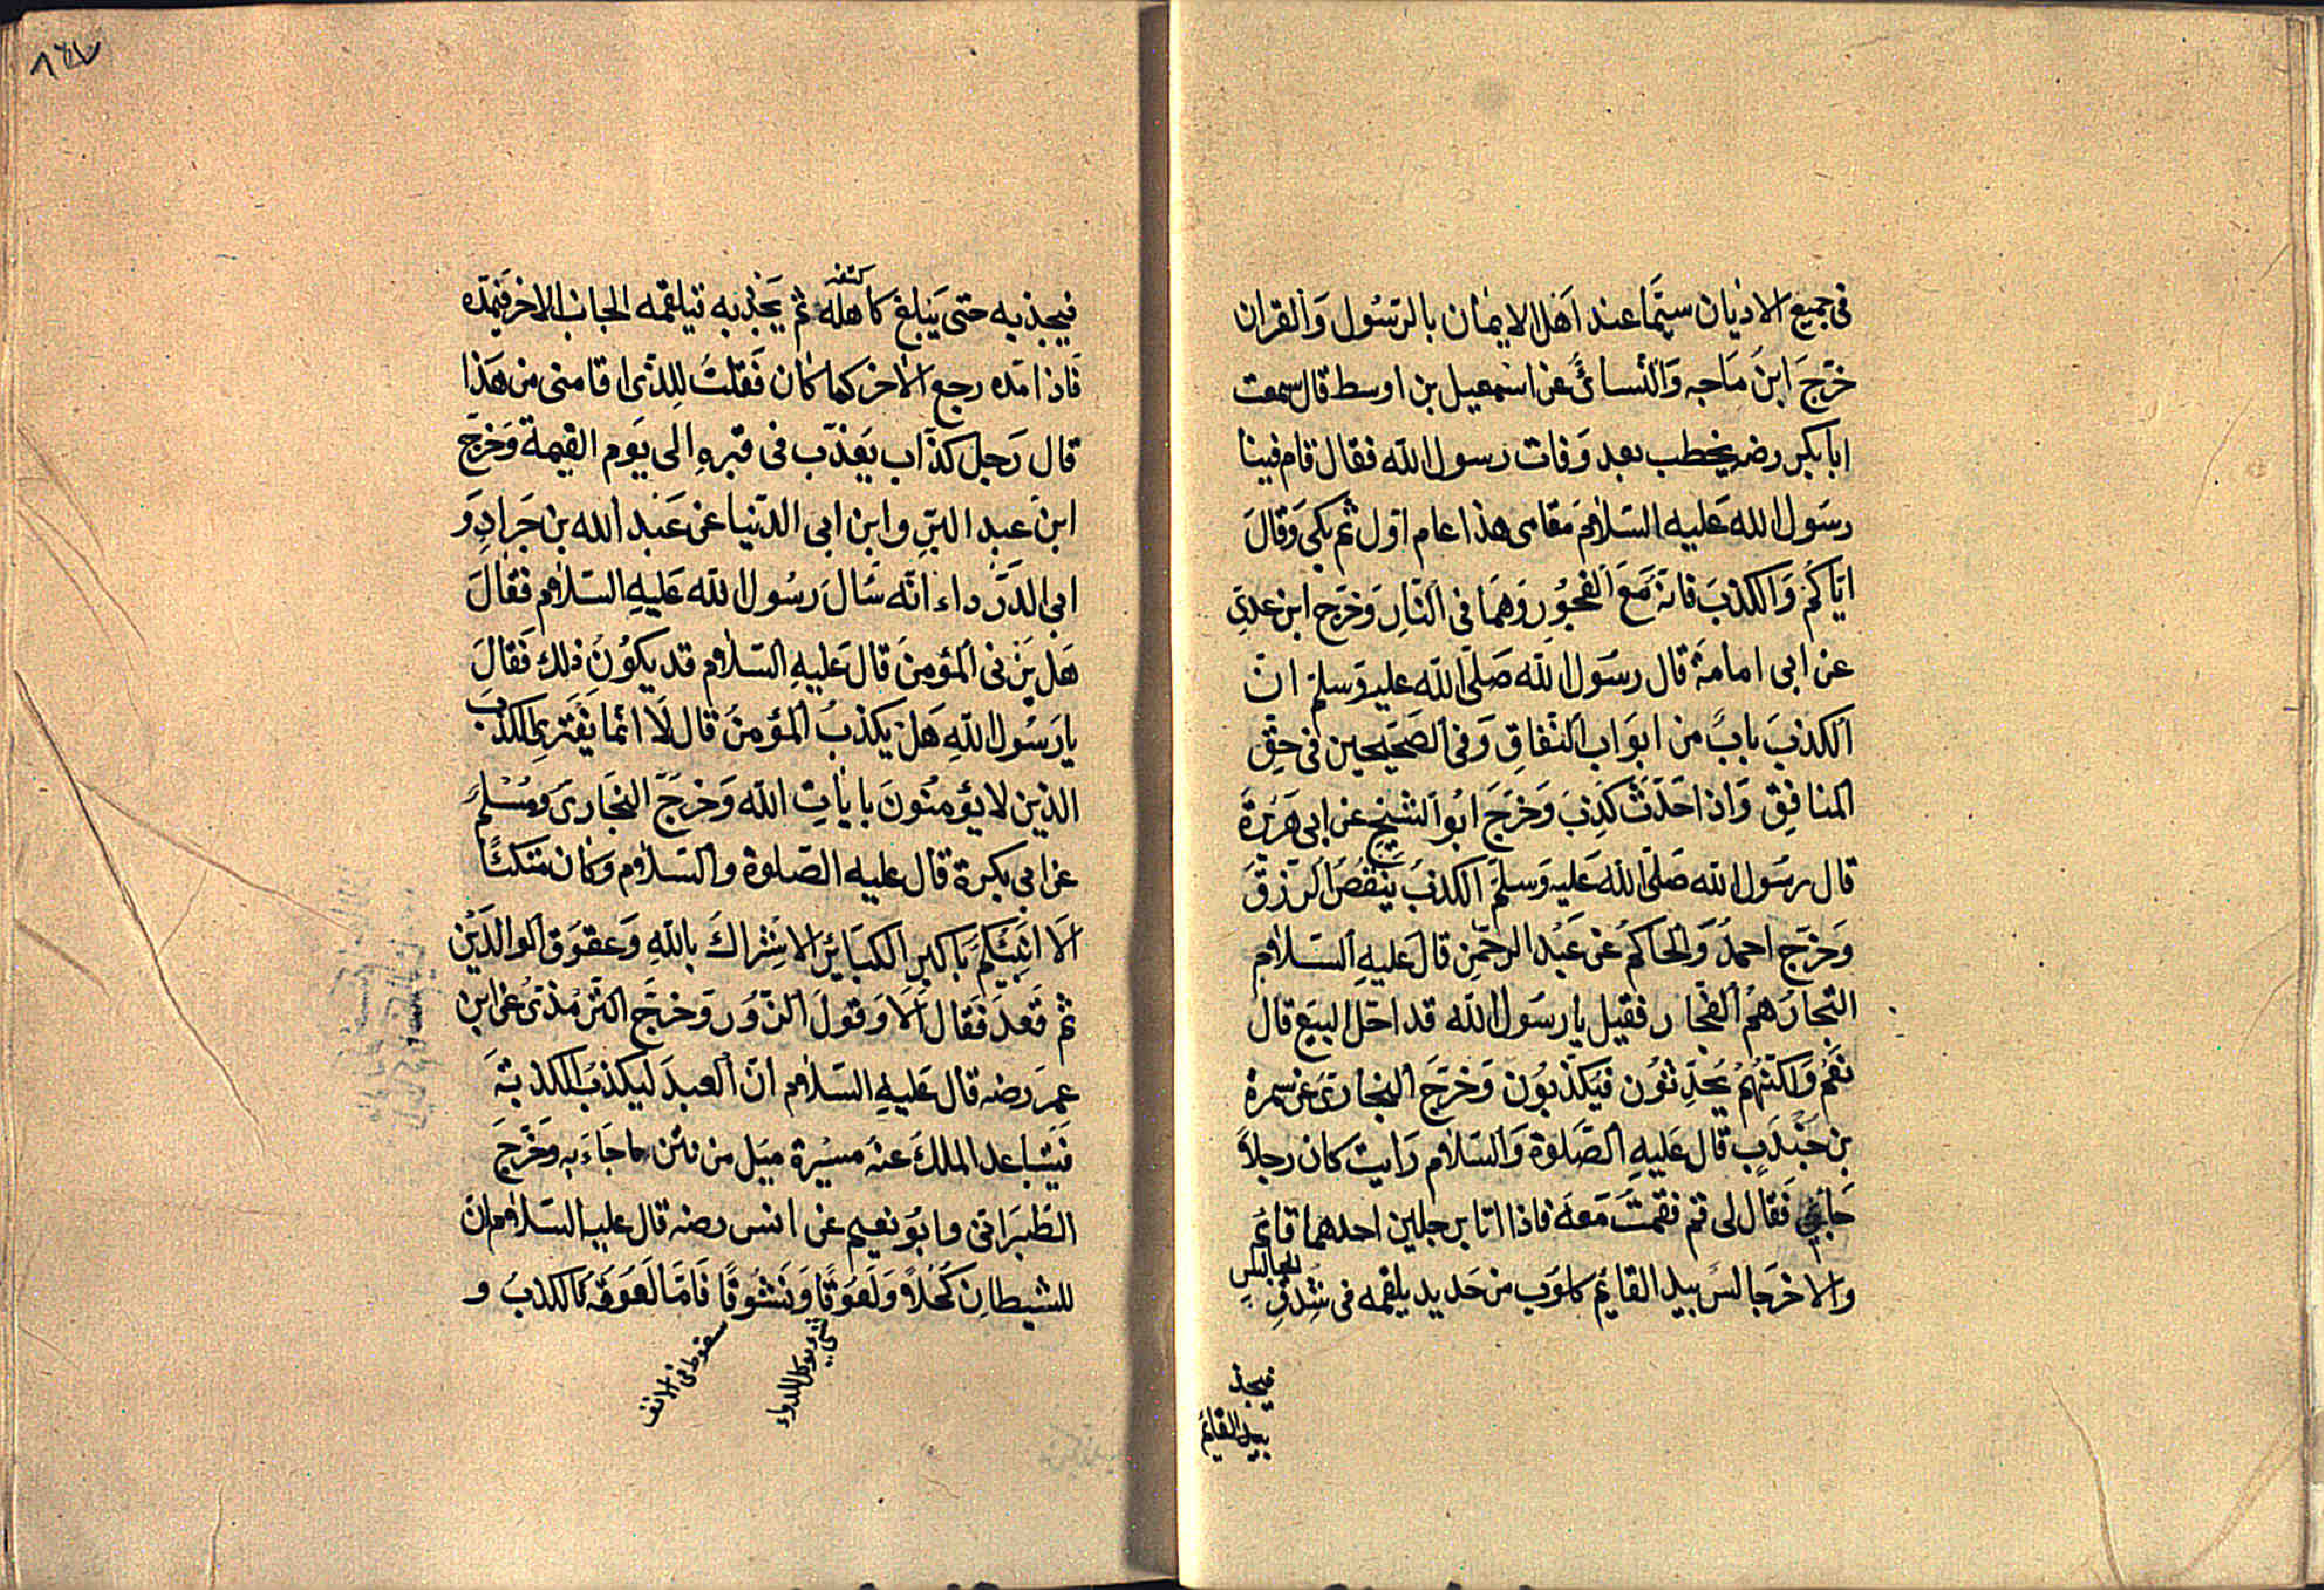 فى جميع الاديان سيّما عند اهل الايمان بالرّسول والقران
خرّج ابن ماجه والنّسائىّ عن اسمعيل بن اوسط قال سمعت
ابا بكر رضه يخطب بعد وفات رسول الله فقال قام فينا
رسول الله عليه السّلام مقامى هذا عام اوّل ثم بكى وقال
ايّاكم والكذب فانّه مع الفجور وهما فى النّار وخرّج ابن عدىّ
عن ابى امامة قال رسول الله صلّى الله عليه وسلم انّ
الكذب باب من ابواب النّفاق وفى الصّحيحين فى حقّ
المنافق واذا حدّث كذب وخرّج ابو الشيخ عن ابى هريرة
قال رسول الله صلّى الله عليه وسلم الكذب ينقص الرّزق
وخرّج احمد والحاكم عن عبد الرحمن قال عليه السّلام
التّجار هم الفجّار فقيل يا رسول الله قد احلّ البيع قال
نعم ولكنّهم يحدّثون فيكذبون وخرّج البخارى عن سمرة
بن جندب قال عليه الصّلوة والسّلام رايت كان رجلاً
جاءنى فقال لى قم فقمت معه فاذا انا برجلين احدهما قائم
والاخر جالس بيد القائم كلوب من حديد يلقمه فى شدق
الجالس
فيجذ
بيد القائم
٨٤٧
كتفه
فيجذبه حتى يبلغ كاهله ثم يجذبه فيلقمه الجانب الاخر فيمدّه
فاذا مدّه رجع الاخر كما كان فقلت للذى اقامنى من هذا
قال رجل كذّاب يعذّب فى قبره الى يوم القيمة وخرّج
ابن عبد البرّ وابن ابى الدّنيا عن عبد الله بن جراد و
ابى الدّرداء انّه سال رسول الله عليه السّلام فقال
هل يزنى المؤمن قال عليه السّلام قد يكون ذلك فقال
يا رسول الله هل يكذب المؤمن قال لا انّما يفترى الكذب
الذين لا يؤمنون بايات الله وخرّج البخارى ومسلم
عن ابى بكرة قال عليه الصّلوة والسّلام وكان متكئًا
الا انبّئكم باكبر الكبائر الاشراك بالله وعقوق الوالدين
ثم قعد فقال الا وقول الزّور وخرّج التّرمذىّ عن ابن
عمر رضه قال عليه السّلام انّ العبد ليكذب الكذبة
فيتباعد الملك عنه مسيرة ميل من نتن ما جاء به وخرّج
الطّبرانى وابو نعيم عن انس رضه قال عليه السّلام ان
للشيطان كحلاً ولعوقًا ونشوقًا فامّا لعوقه فالكذب و
سقوط فى الانف